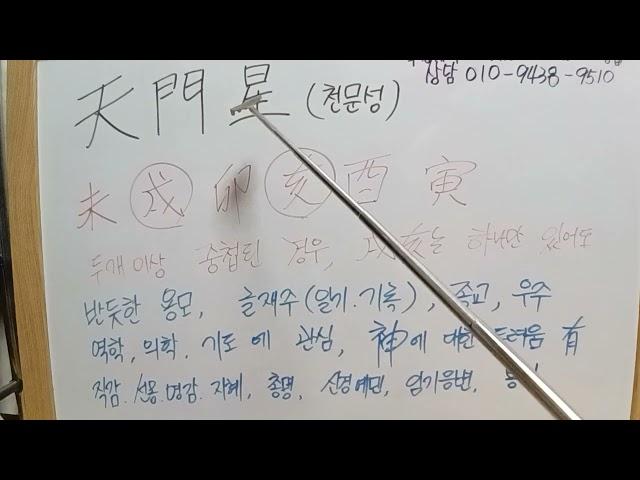 상담 010-9438-9510
天門星 (천문성)
未 戌 卯 亥 酉 寅
두개 이상 중첩된 경우, 戌亥는 하나만 있어도
반듯한 용모, 글재주(일기.기록), 종교, 우주
역학, 의학, 기도에 관심, 神에 대한 두려움 有
직감.선몽.영감.지혜, 총명, 신경예민, 임기응변,